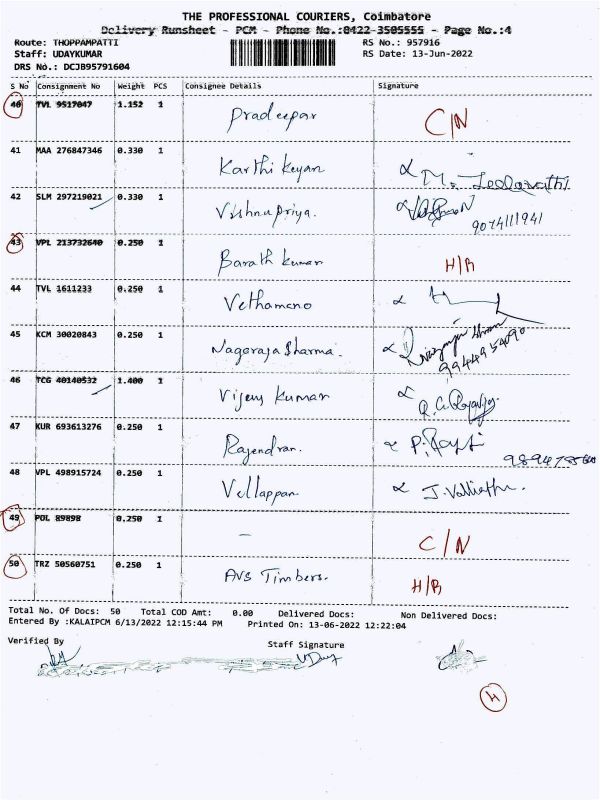 THE PROFESSIONAL COURIERS, Coimbatore
Delivery Runsheet - PCM - Phone No.:0422-3505555 - Page No.:4
Route: THOPPAMPATTI RS No.: 957916
Staff: UDAYKUMAR RS Date: 13-Jun-2022
DRS No.: DCJB95791604
S No Consignment No Weight PCS Consignee Details Signature
40 TVL 9517047 1.152 1 Pradeepar C/N
41 MAA 276847346 0.330 1 Karthi Keyan
42 SLM 297219021 0.330 1 Vishnupriya. 9074111941
43 VPL 213732640 0.250 1 Barath kumar H/R
44 TVL 1611233 0.250 1 Vethamono
45 KCM 30020843 0.250 1 Nagaraja Sharma. 9944954090
46 TCG 40140532 1.400 1 Vijay Kumar
47 KUR 693613276 0.250 1 Rajendran.
48 VPL 498915724 0.250 1 Vellappan J. Valliathu.
49 POL 89898 0.250 1 - C/N
50 TRZ 50560751 0.250 1 AVS Timbers. H/R
Total No. Of Docs: 50 Total COD Amt: 0.00 Delivered Docs: Non Delivered Docs:
Entered By :KALAIPCM 6/13/2022 12:15:44 PM Printed On: 13-06-2022 12:22:04
Verified By Staff Signature
UDay
4